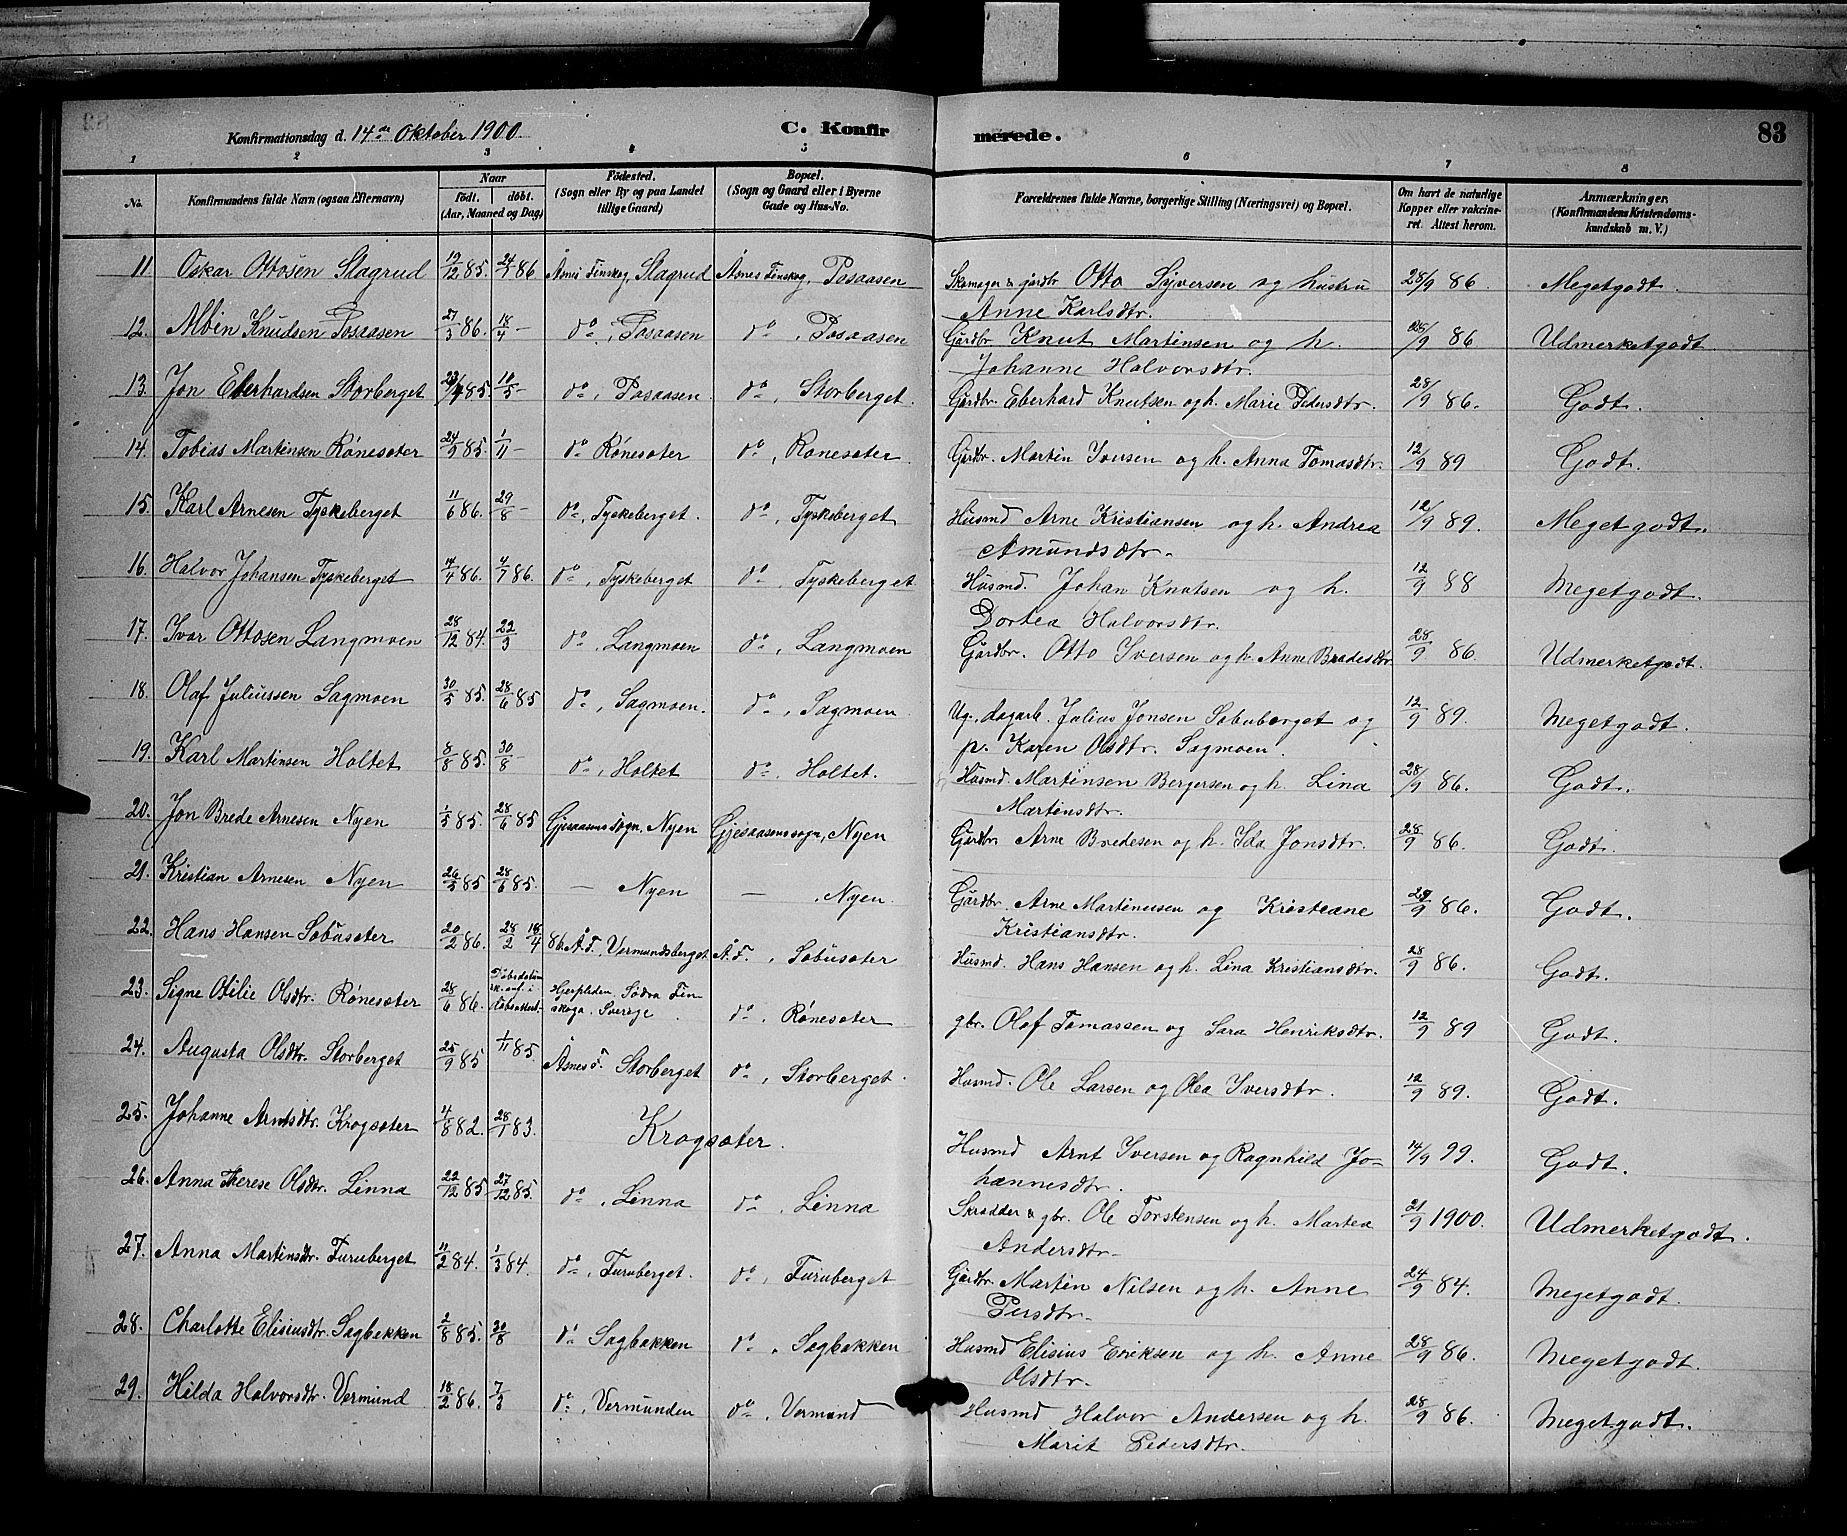 Konfirmationsdag d. 14de Oktober 1900.
C. Konfirmerede.
83
1 2 3 4 5 6 7 8
No.
Konfirmandens fulde Navn (ogsaa Efternavn)
Naar
födt. döbt.
(Aar, Maaned og Dag)
Födested.
(Sogn eller By og paa Landet tillige Gaard)
Bopæl.
(Sogn og Gaard eller i Byerne Gade og Hus-No.
Forældrenes fulde Navne, borgerlige Stilling (Næringsvei) og Bopæl.
Om havt de naturlige Kopper eller vakcineret. Attest herom.
Anmærkninger.
(Konfirmandens Kristendomskundskab m. V.)
11 Oskar Ottosen Slagrud 19/12 85. 24/1 86 Åsnes Finskog, Slagrud Åsnes Finskog, Posaasen Skomager & gårdbr Otto Syversen og hustru Anne Karlsdtr. 28/9 86 Megetgodt.
12. Albin Knudsen Posaasen 27/3 86. 18/4 - do, Posaasen do, Posaasen Gårdbr Knut Martinsen og h. Johanne Halvorsdtr. 28/9 86 Udmerketgodt
13. Jon Eberhardsen Storberget 85 10/5 - do, Posaasen. do, Storberget. Gårdbr. Eberhard Knutsen og h. Marie Pedersdtr. 28/9 86. Godt.
14. Tobias Martinsen Rönesæter 24/9 85. 1/11 - do Rönesæter do, Rönesæter. Gårdbr. Martin Iversen og h. Anna Tomasdtr. 12/9 89 Godt.
15. Karl Arnesen Tyskeberget 11/6 86. 29/8 - do, Tyskeberget. do, Tyskeberget Husmd Arne Kristiansen og h. Andrea Amundsdtr. 12/9 89. Megetgodt.
16. Halvor Johansen Tyskeberget 4/4 86. 4/7 86. do, Tyskeberget do, Tyskeberget Husmd. Johan Knutsen og h. Dortea Halvorsdtr. 12/9 88 Megetgodt.
17. Ivar Ottosen Langmoen 28/12 84. 22/3 do, Langmoen do, Langmoen Gårdbr. Otto Iversen og h. Anne Bredesdtr 28/9 86. Udmerketgodt.
18. Olaf Juliussen Sagmoen 30/5 85. 28/6 85 do, Sagmoen. do, Sagmoen Ug., dagarb. Julius Jonsen Sobuberget og p. Karen Olsdtr. Sagmoen. 12/9 89. Megetgodt.
19. Karl Martinsen Holtet 8/8 85. 30/8 - do, Holtet do, Holtet. Husmd. Martinsen Bergersen og h. Lina Martinsdtr. 28/9 86. Godt.
20. Jon Brede Arnesen Nyen 1/5 85. 28/6 85 Gjesaasens sogn, Nyen Gjesaasens sogn, Nyen Gårdbr. Arne Bredesen og h. Ida Jonsdtr. 28/9 86. Godt.
21. Kristian Arnesen Nyen 26/5 85 28/6 85. — Nyen — , Nyen Gårdbr. Arne Martinusen og Kristiane Kristiansdtr. 86. Godt.
22. Hans Hansen Sobusæter 20/2 86. 28/2 18/4 86. Å.F., Vermundsberget Å.F. , Sobusæter Husmd. Hans Hansen og h. Lina Kristiansdtr. 28/9 86. Godt.
23. Signe Otilie Olsdtr. Rönesæter 28/6 86. Hjerpliden Södra Finskoga. Sverige do, Rönesæter gbr. Olof Tomassen og Sara Henriksdtr. 12/9 89 Godt.
24. Augusta Olsdtr. Storberget 25/9 85 1/11 85. Åsnes F. Storberget do, Storberget. Husmd. Ole Larsen og Olea Iversdtr. 12/9 89. Godt.
25. Johanne Arntsdtr. Krogsæter 4/8 82. 28/1 83. Krogsæter. Husmd Arnt Iversen og Ragnhild Johannesdtr. 14/9 99. Godt.
26. Anna Therese Olsdtr. Linna 22/12 85 27/12 85. do, Linna do, Linna Skrædder & gbr. Ole Torstensen og h. Martea Andersdtr. 21/9 1900. Udmerketgodt.
27. Anna Martinsdtr. Furuberget 11/2 84. 1/3 84. do, Furuberget. do, Furuberget Gårdbr Martin Nilsen og h. Anne Persdtr. 24/9 84. Megetgodt.
28. Charlotte Elisiusdtr. Sagbekken 2/8 85. 30/8 do Sagbekken do, Sagbekken Husmd Elisius Eriksen og h. Anne Olsdtr. 28/9 86. Megetgodt.
29. Hilda Halvorsdtr. Vermund 18/2 86. 7/3 do, Vermunden do, Vermund Husmd Halvor Andersen og h. Marit Pedersdtr. 28/9 86. Megetgodt.